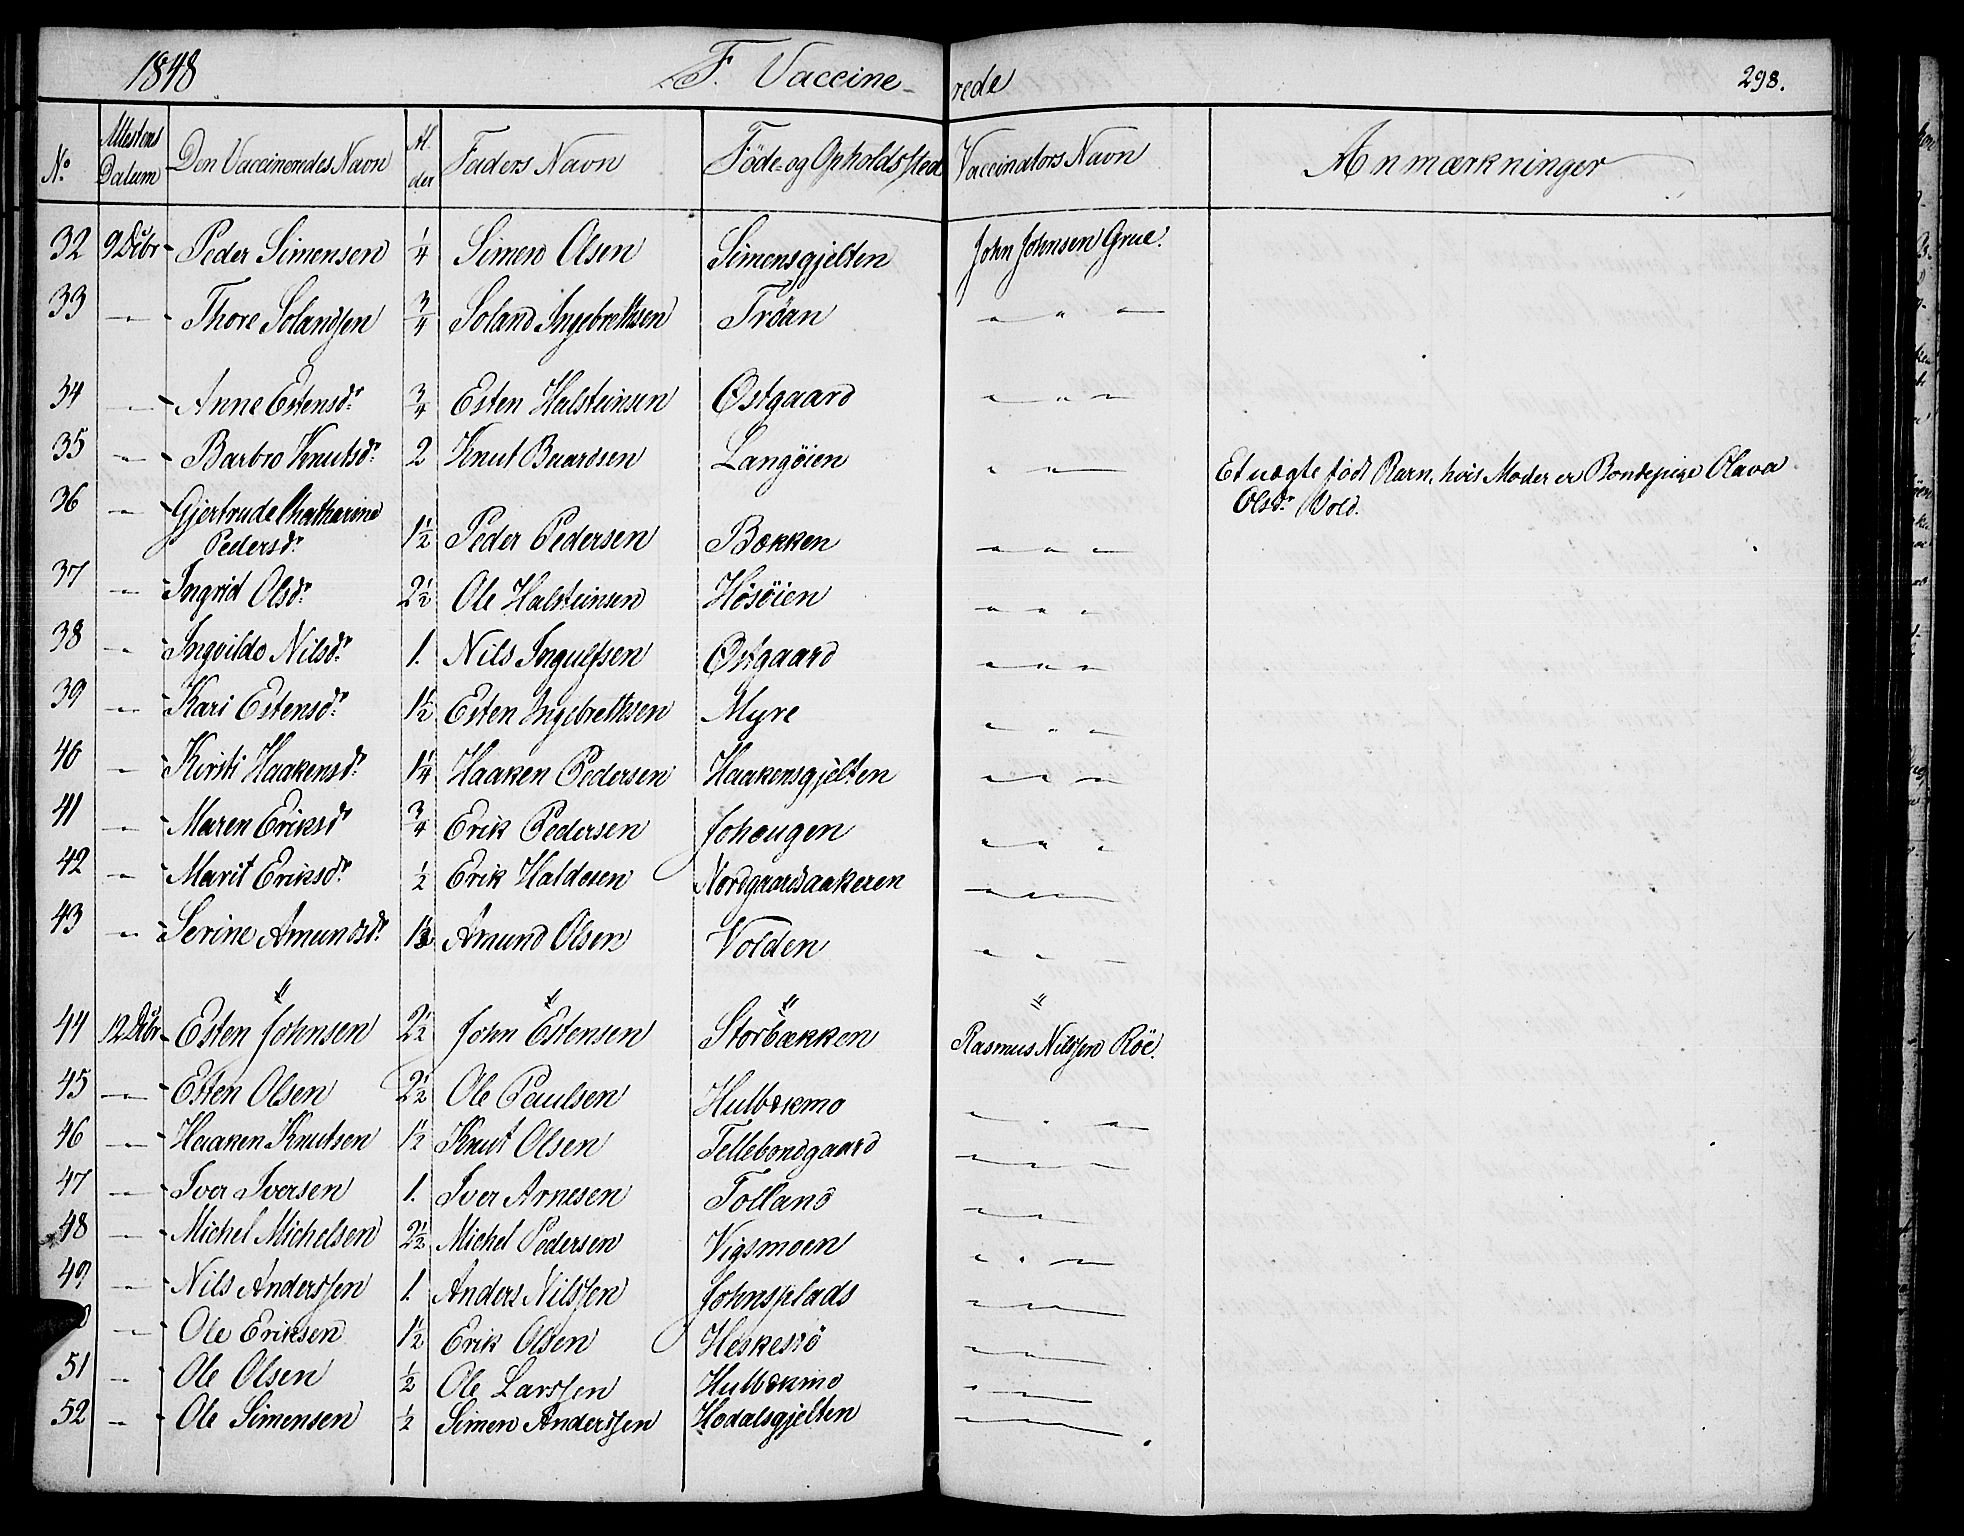 1848 F. Vaccine- rede 298.
No Attestens Datum Den Vaccineredes Navn Alder Faders Navn Föde- og Opholdssted Vaccinators Navn Anmærkninger
32 9 Decbr Peder Simensen 1/4 Simen Olsen Simensgjelten John Johnsen Grue.
33 " Thore Solandsen 3/4 Soland Ingebrethsen Tröan " " "
34 " Anne Estensdr. 3/4 Esten Halsteinsen Østgaard " " "
35 " Barbro Knutsdr. 2 Knut Baardsen Langöien " " Et uægte födt Barn, hvis Moder er Bondepige Olava
Olsdr. Vold.
36 " Gjertrude Chatharine
Pedersdr. 1 1/2 Peder Pedersen Bækken " " "
37 " Ingrid Olsdr. 2 1/2 Ole Halsteinsen Hösöien " " "
38 " Ingvildo Nilsdr. 1. Nils Ingulfsen Østgaard " " "
39 " Kari Estensdr. 1 1/2 Esten Ingebrethsen Myre " " "
40 " Kirsti Haakensdr. 1 1/4 Haaken Pedersen Haakensgjelten " " "
41 " Maren Eriksdr 3/4 Erik Pedersen Johaugen " " "
42 " Marit Eriksdr. 1/2 Erik Haldosen Nordgaardsaakeren " " "
43 " Serine Amundsdr. Amund Olsen Volden " " "
" " " "
44 12 Decbr Esten Johnsen 2 1/2 John Estensen Storbækken Rasmus Nilssen Röe.
45 " Esten Olsen 2 1/2 Ole Paulsen Hulbækmo " " "
46 " Haaken Knutsen 1 1/2 Knut Olsen Tellebondgaard " " "
47 " Iver Iversen 1. Iver Arnesen Tolland " " "
48 " Michel Michelsen 2 1/2 Michel Pedersen Vigsmoen " " "
49 " Nils Anderssen 1. Anders Nilssen Johnsplads " " "
" Ole Eriksen 1 1/2 Erik Olsen " " "
51 " Ole Olsen 1/2 Ole Larssen Hulbækmo " " "
52 " Ole Simensen 1/2 Simen Anderssen Hodalsgjelten " " "